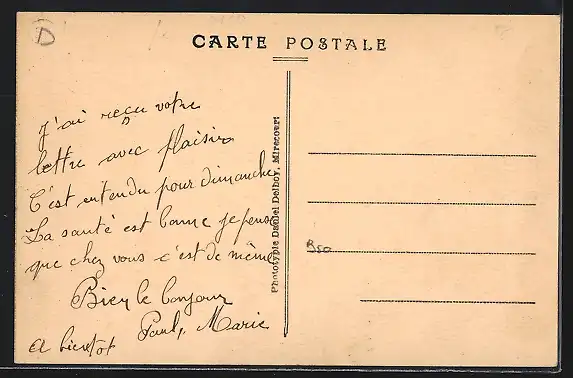 D
CARTE POSTALE
J'ai reçu votre
lettre avec plaisir
C'est entendu pour dimanche
La santé est bonne je pense
que chez vous c'est de même
Bien le bonjour
Paul, Marie
A bientot
Phototypie Daniel Delboy, Mirecourt
B50